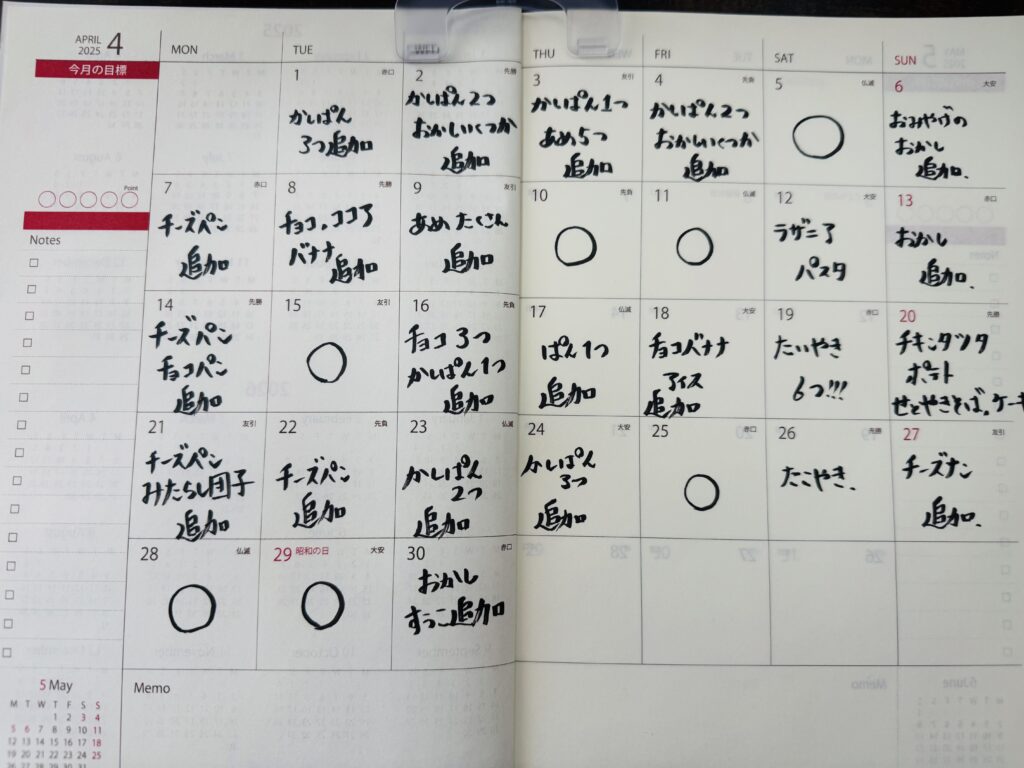 APRIL
2025 4
今月の目標
Point
Notes
MON
TUE
THU
FRI
SAT
SUN
1 赤口
かしぱん
3つ追加
2 先勝
かしぱん2つ
おかしいくつか
追加
3 友引
かしぱん1つ
あめ5つ
追加
4 先負
かしぱん2つ
おかしいくつか
追加
5 仏滅
6 大安
おみやげの
おかし
追加.
7 赤口
チーズパン
追加
8 先勝
チョコ。ココア
バナナ
追加
9 友引
あめ たくさん
追加
10 先負
11 仏滅
12 大安
ラザニア
パスタ
13 赤口
おかし
追加.
14 先勝
チーズパン
チョコパン
追加
15 友引
16 先負
チョコ 3つ
かしぱん1つ
追加
17 仏滅
ぱん1つ
追加
18 大安
チョコバナナ
アイス
追加
19 赤口
たいやき
6つ!!!
20 先勝
チキンタツタ
ポテト
せとやきそば。ケーキ
21 友引
チーズパン
みたらし団子
追加
22 先負
チーズパン
追加
23 仏滅
かしぱん
2つ
追加
24 大安
かしぱん
3つ
追加
25 赤口
26 先勝
たこやき.
27 友引
チーズナン
追加.
28 仏滅
29 昭和の日 大安
30 赤口
おかし
すっこ追加
5 May
M T W T F S S
1 2 3 4
5 6 7 8 9 10 11
12 13 14 15 16 17 18
19 20 21 22 23 24 25
26 27 28 29 30 31
Memo